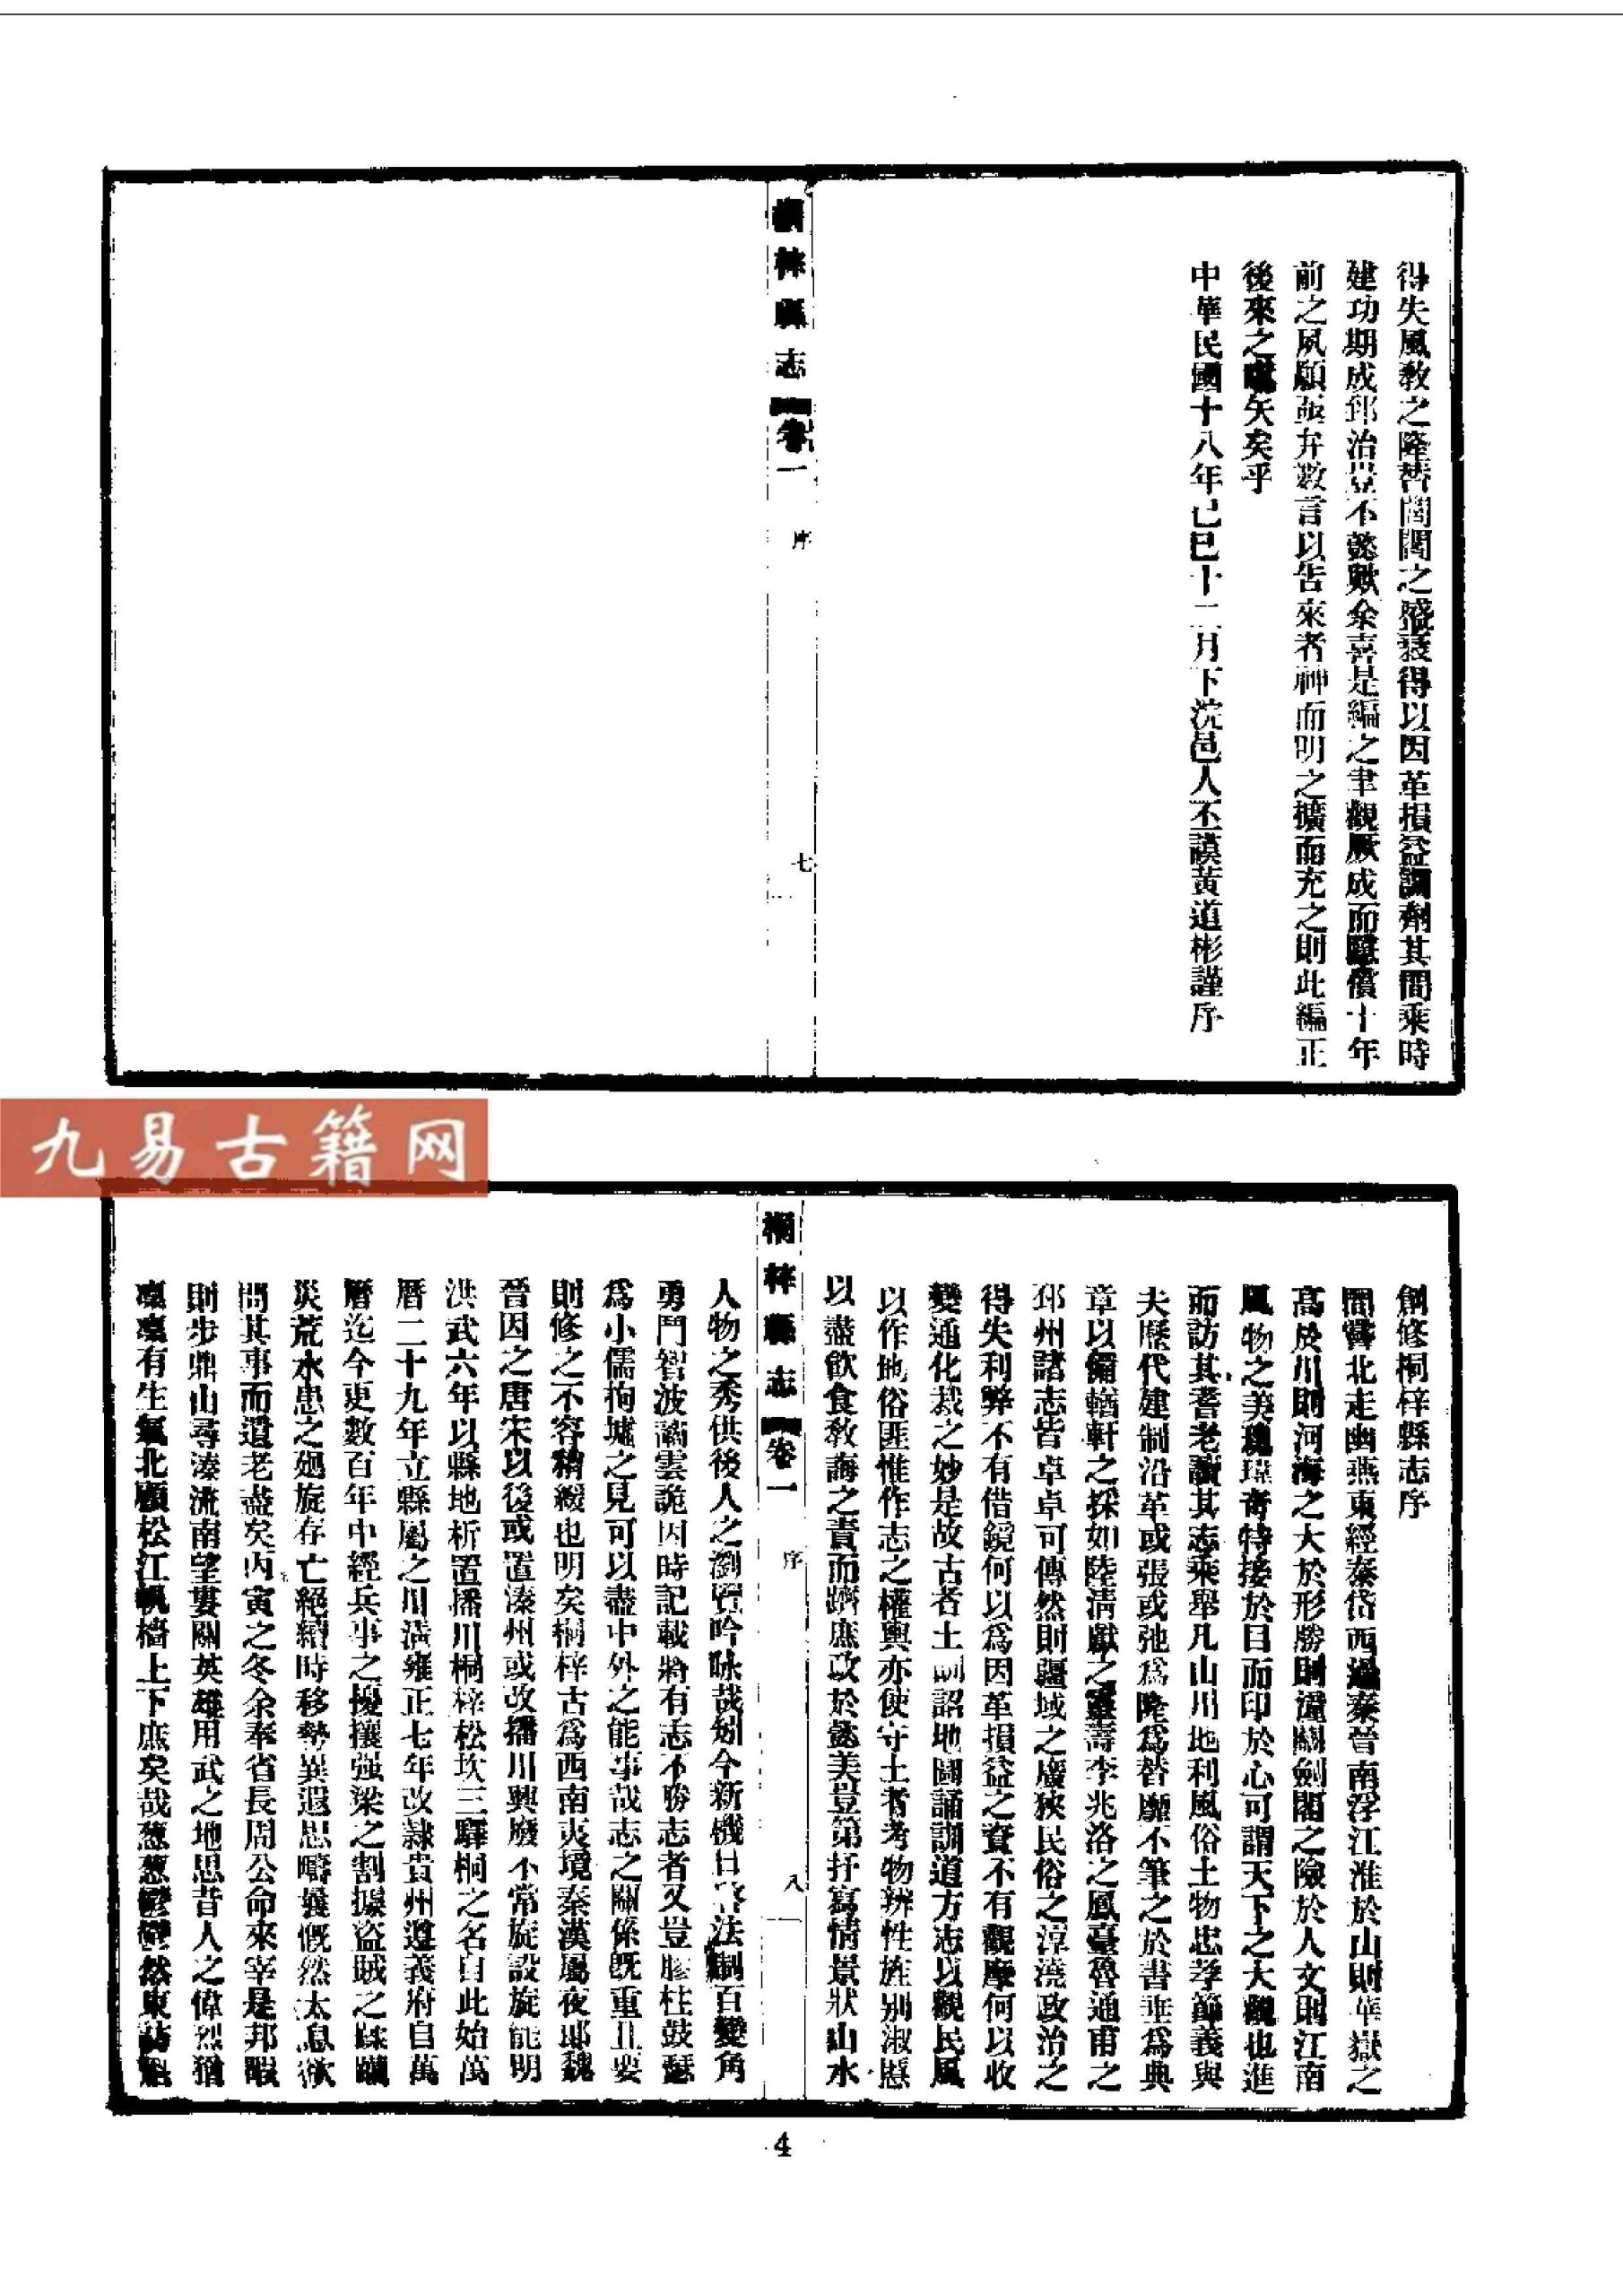 得失風敎之隆替閭閻之盛衰得以因革損益調劑其間乘時
建功期成郅治豈不懿歟余喜是編之聿觀厥成而償十年
前之夙願亟弁數言以告來者神而明之擴而充之則此編正
後來之嚆矢矣乎
中華民國十八年己巳十二月下浣邑人丕謨黃道彬謹序
桐梓縣志 卷一 序 七
九易古籍网
創修桐梓縣志序
間嘗北走幽燕東經泰岱西過秦晉南浮江淮於山則華嶽之
高於川則河海之大於形勝則潼關劍閣之險於人文則江南
風物之美瑰瑋奇特接於目而印於心可謂天下之大觀也進
而訪其耆老讀其志乘舉凡山川地利風俗土物忠孝節義與
夫歷代建制沿革或張或弛爲隆爲替靡不筆之於書垂爲典
章以備輶軒之採如陸清獻之靈壽李兆洛之鳳臺魯通甫之
邳州諸志皆卓卓可傳然則疆域之廣狹民俗之淳澆政治之
得失利弊不有借鏡何以爲因革損益之資不有觀摩何以收
變通化裁之妙是故古者土訓詔地圖誦訓道方志以觀民風
以作地俗匪惟作志之權輿亦使守土者考物辨性旌別淑慝
以盡飲食敎誨之責而躋庶政於懿美豈第抒寫情景狀山水
桐梓縣志 卷一 序 八
人物之秀供後人之瀏覽吟咏哉矧今新機日啓法制百變角
勇鬥智波譎雲詭因時記載將有志不勝志者又豈膠柱鼓瑟
爲小儒拘墟之見可以盡中外之能事哉志之關係旣重且要
則修之不容稍緩也明矣桐梓古爲西南夷境秦漢屬夜郎魏
晉因之唐宋以後或置溱州或改播川興廢不常旋設旋能明
洪武六年以縣地析置播川桐梓松坎三驛桐之名自此始萬
曆二十九年立縣屬之川淸雍正七年改隸貴州遵義府自萬
曆迄今更數百年中經兵事之擾攘强梁之割據盜賊之蹂躪
災荒水患之廻旋存亡絕續時移勢異遐思疇曩慨然太息欲
問其事而遺老盡矣丙寅之冬余奉省長周公命來宰是邦暇
則步鼎山尋溱流南望婁關英雄用武之地思昔人之偉烈猶
凜凜有生氣北顧松江帆檣上下庶矣哉葱葱鬱鬱然東訪魁
4